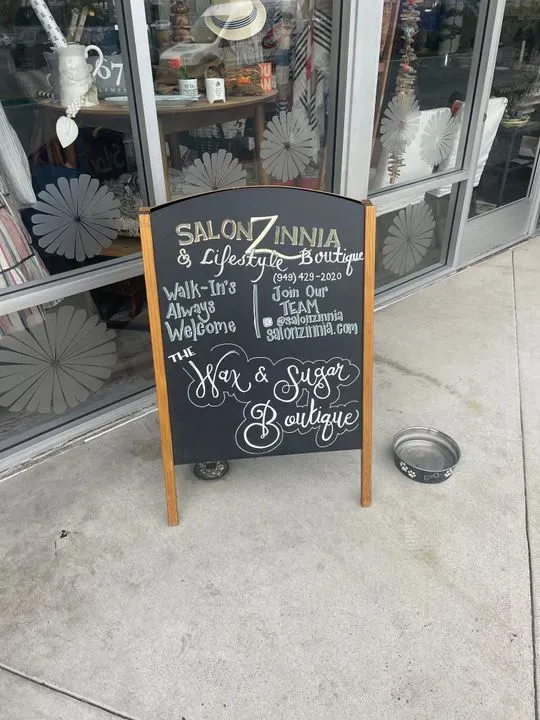 67
SALON ZINNIA
& Lifestyle Boutique
(949) 429-2020
Walk-In's
Always
Welcome
Join Our
TEAM
@salonzinnia
salonzinnia.com
THE
Wax & Sugar
Boutique